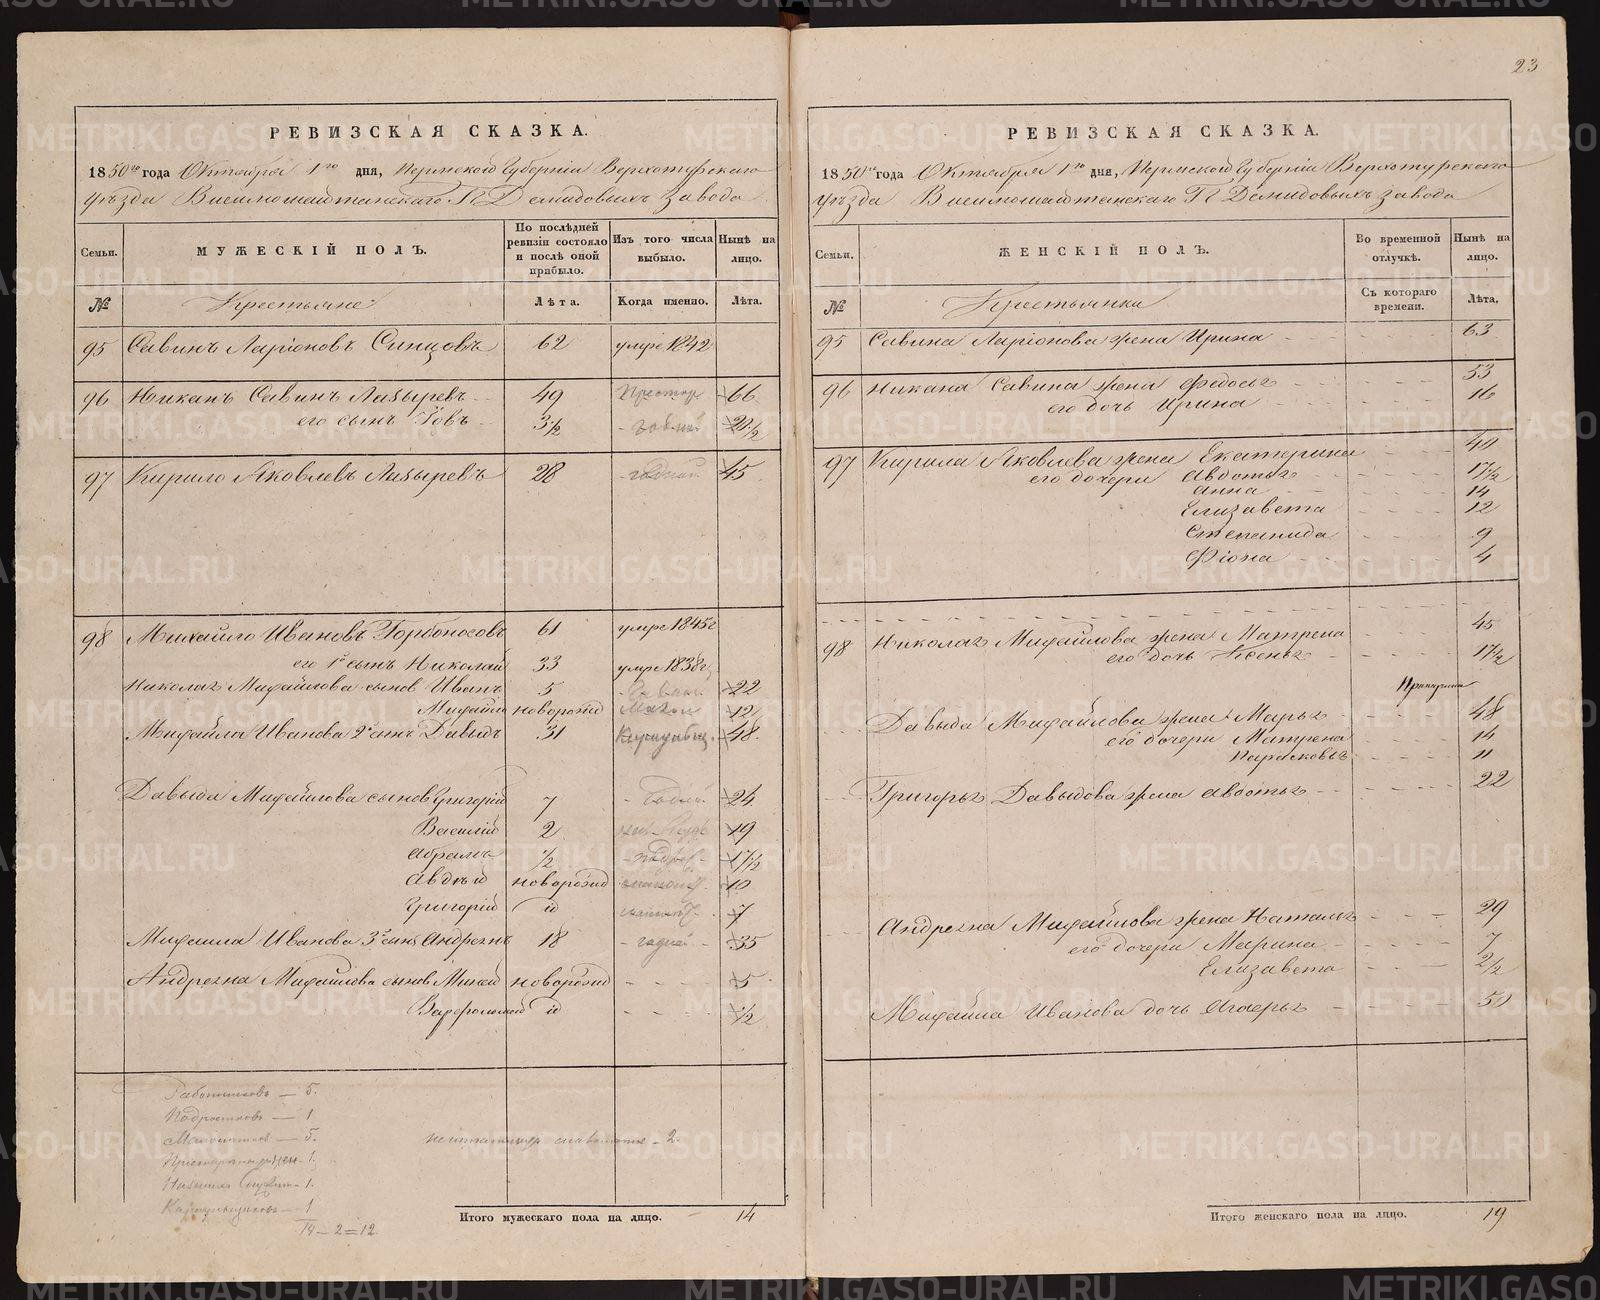 23
РЕВИЗСКАЯ СКАЗКА.
1850го года Октября 1го дня, Пермской Губерніи Верхотурскаго
уѣзда Висимошайтанскаго Гг Демидовыхъ завода
Семьи.
МУЖЕСКІЙ ПОЛЪ.
По послѣдней ревизіи состояло и послѣ оной прибыло.
Изъ того числа выбыло.
Нынѣ на лицо.
№
Крестьяне
Лѣта.
Когда именно.
Лѣта.
95 Савинъ Ларіоновъ Синцовъ 62 умре 1842
96 Никанъ Савинъ Лазыревъ 49 66
его сынъ Іовъ 3½ 20½
97 Кирило Яковлевъ Лазыревъ 28 годный 45
98 Михайло Ивановъ Горбоносовъ 61 умре 1845г
его 1й сынъ Николай 33 умре 1838г
Николая Михайлова сынов Иванъ 5 22
Михайло новорожд 12
Михайла Иванова 2й сынъ Давыдъ 31 48
Давыда Михайлова сынов Григорій 7 24
Василій 2 19
Абрамъ ½ 17½
Авдѣй новорожд 10
Григорій й 7
Михаила Иванова 3й сынъ Андреянъ 18 годной 35
Андреяна Михайлова сынов Минай новорожд 5
Варфоломей й ½
Работниковъ — 5.
Подростковъ — 1
Малолѣтков — 5.
1.
1.
Караульщиковъ — 1
14 — 2 = 12.
2.
Итого мужескаго пола на лицо. 14
РЕВИЗСКАЯ СКАЗКА.
1850го года Октября 1го дня, Пермской Губерніи Верхотурскаго
уѣзда Висимошайтанскаго Гг Демидовыхъ завода
Семьи.
ЖЕНСКІЙ ПОЛЪ.
Во временной отлучкѣ.
Нынѣ на лицо.
№
Крестьянки
Съ котораго времени.
Лѣта.
95 Савина Ларіонова жена Ирина 63
96 Никана Савина жена Федосья 53
его дочь Ирина 16
97 Кирила Яковлева жена Екатерина 40
его дочери Авдотья 17½
Анна 14
Елизавета 12
Степанида 9
Фіона 4
98 Николая Михайлова жена Матрена 45
его дочь Ксенья 17½
Давыда Михайлова жена Марья 48
его дочери Матрена 14
Парасковья 11
Григорья Давыдова жена Авдотья 22
Андреяна Михайлова жена Наталья 29
его дочери Марина 7
Елизавета 2½
Михайла Иванова дочь Агаерья 50
Итого женскаго пола на лицо. 19
METRIKI.GASO-URAL.RU